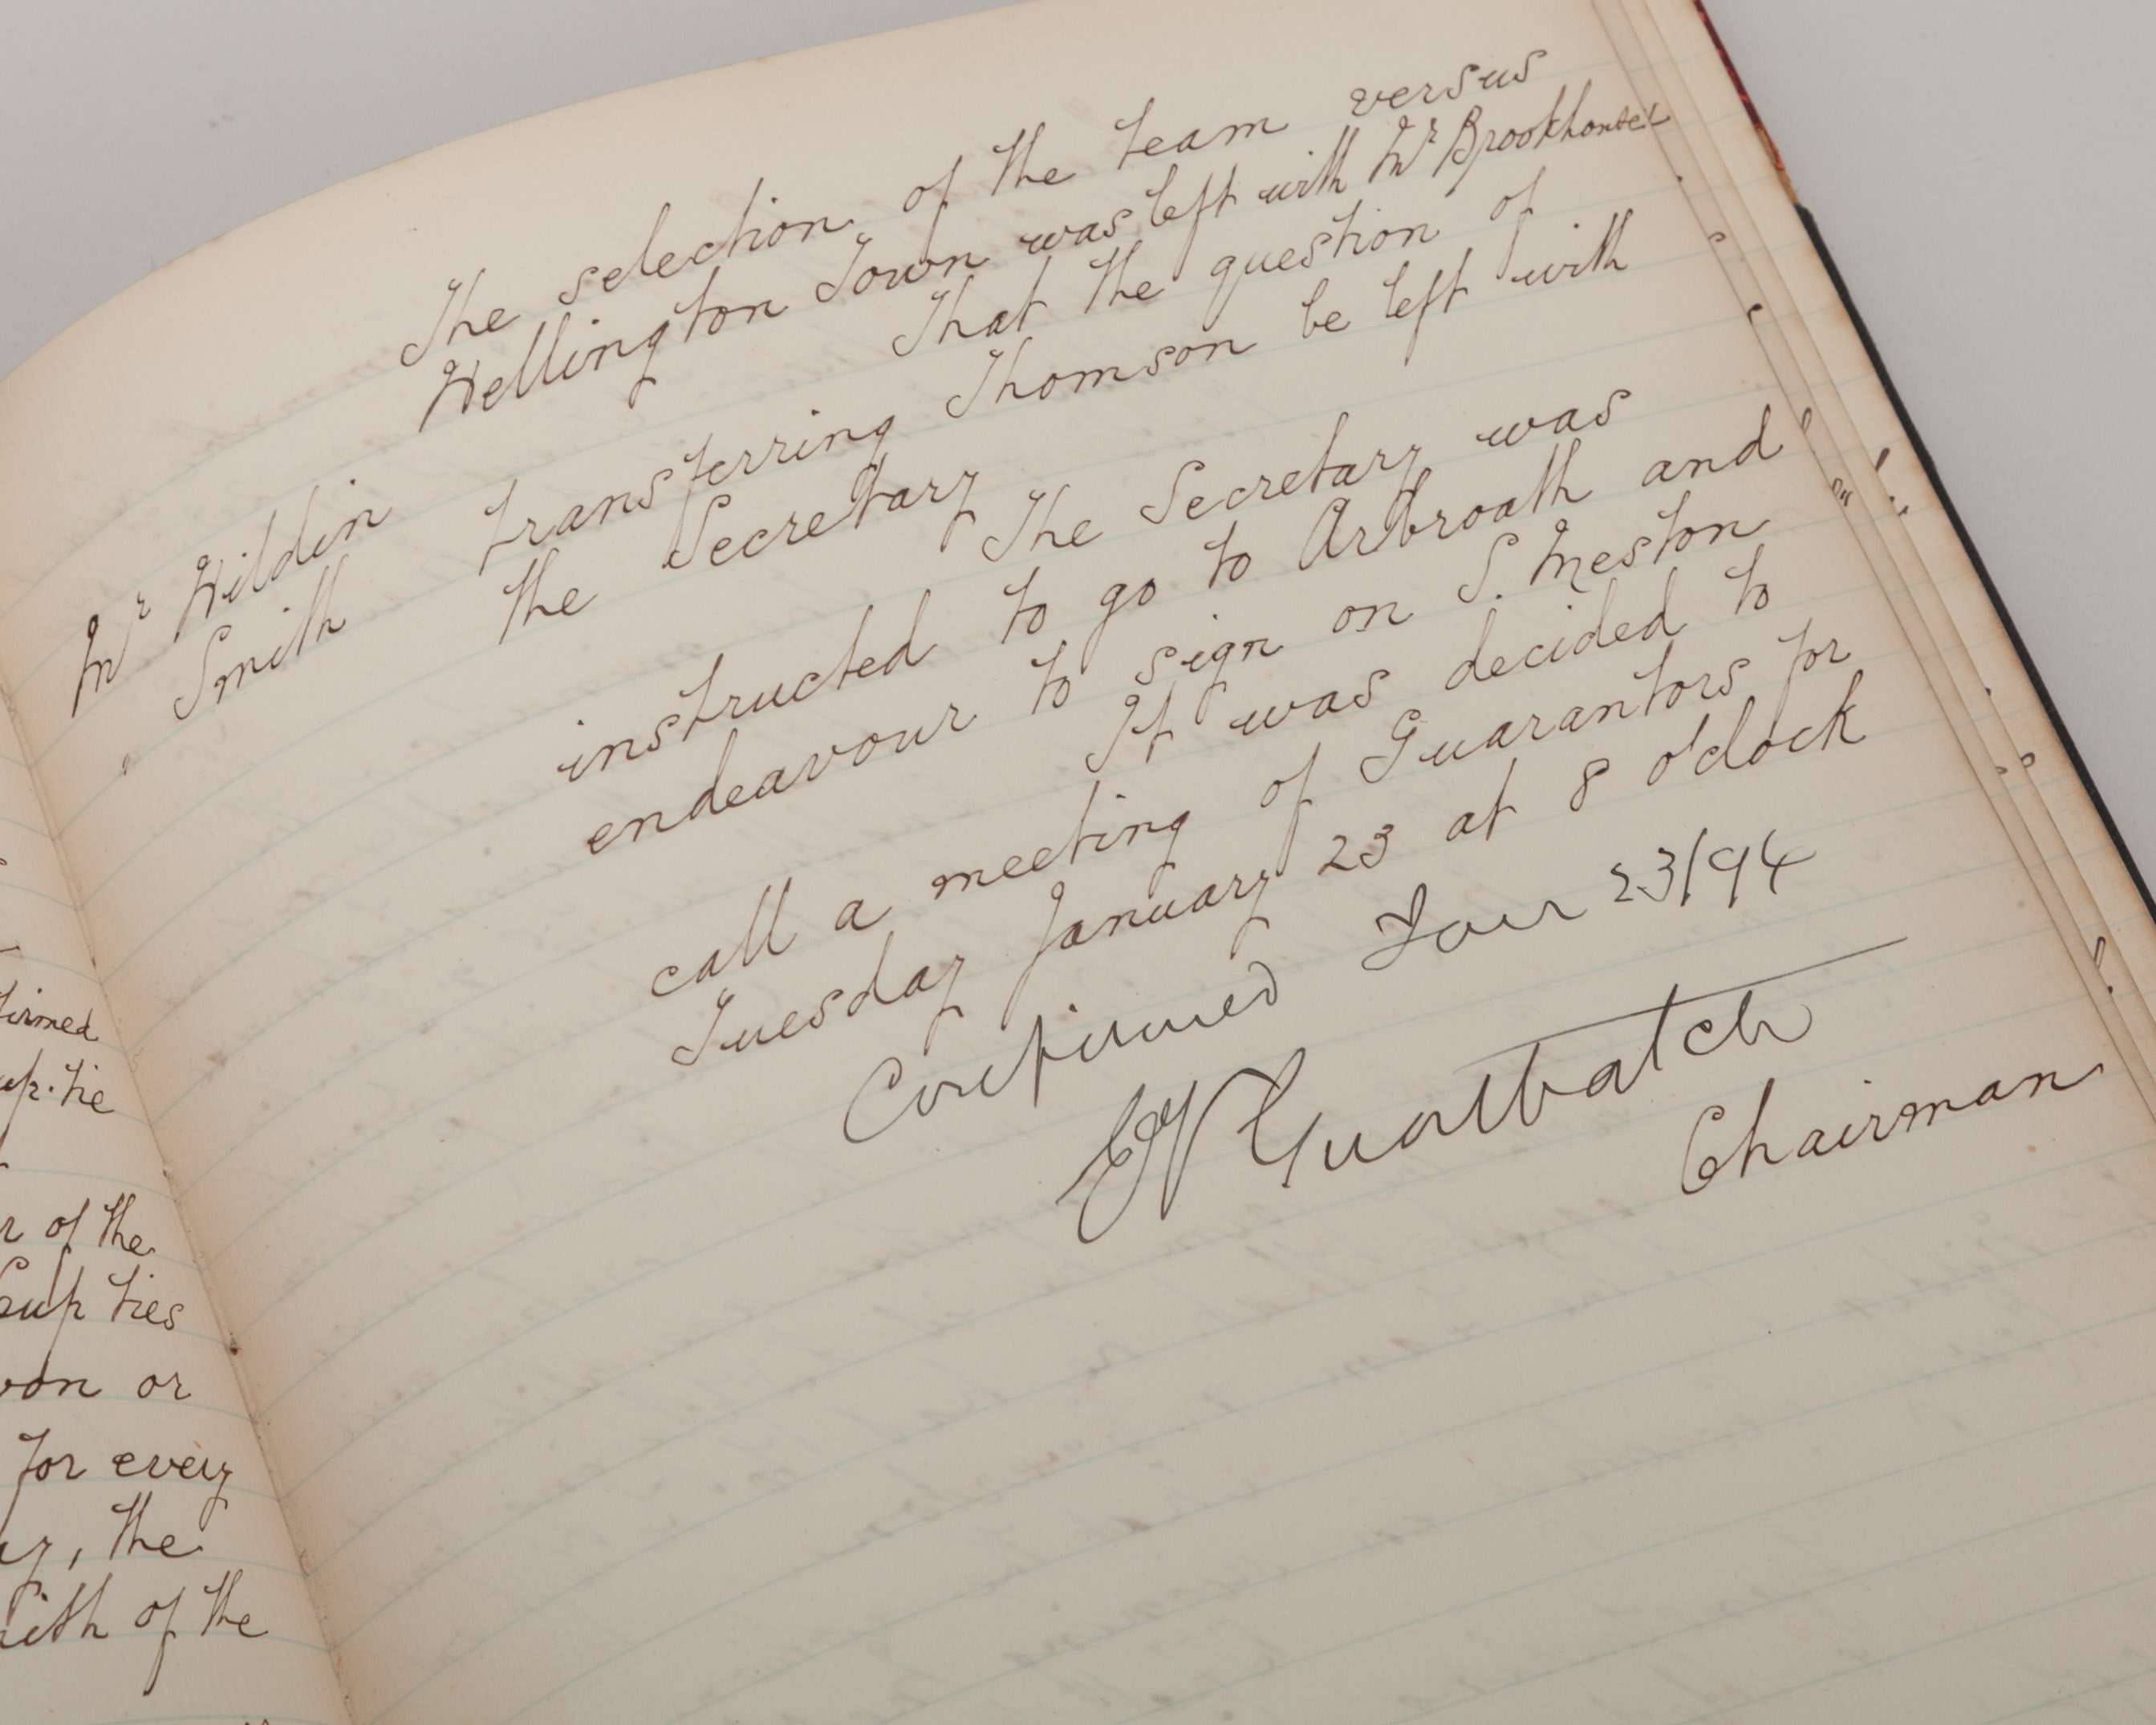 firmed
up. tie
r of the
Cup ties
von or
for every
, the
of the
The selection of the team versus
Wellington Town was left with Mr Brookhouse
That the question of
Mr Hildin
Smith
transferring Thomson be left with
the Secretary
The Secretary was
instructed to go to Arbroath and
endeavour to sign on S. Meston
It was decided to
call a meeting of Guarantors for
Tuesday January 23 at 8 o'clock
Confirmed 23/94
Chairman